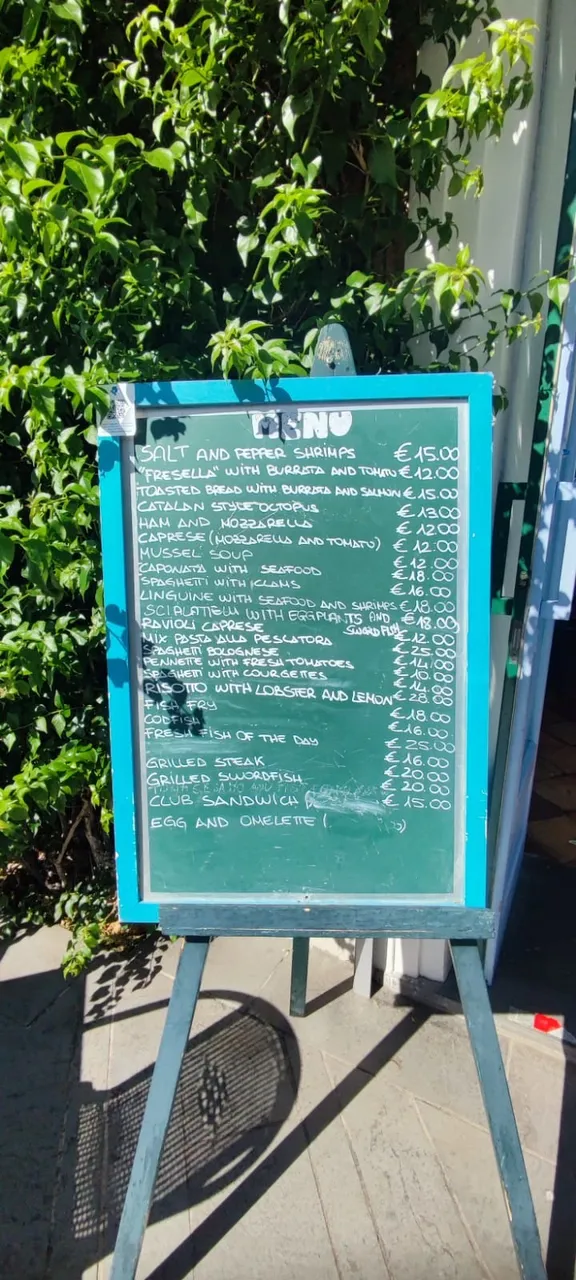 MENU
SALT AND PEPPER SHRIMPS €15.00
"FRESELLA" WITH BURRATA AND TOMATO €12.00
TOASTED BREAD WITH BURRATA AND SALMON €15.00
CATALAN STYLE OCTOPUS €13.00
HAM AND MOZZARELLA €12.00
CAPRESE (MOZZARELLA AND TOMATO) €12.00
MUSSEL SOUP €12.00
CAPONATA WITH SEAFOOD €18.00
SPAGHETTI WITH CLAMS €16.00
LINGUINE WITH SEAFOOD AND SHRIMPS €18.00
SCIALATIELLI WITH EGGPLANTS AND €18.00
RAVIOLI CAPRESE €12.00
MIX PASTA ALLA PESCATORA €25.00
SPAGHETTI BOLOGNESE €14.00
PENNETTE WITH FRESH TOMATOES €10.00
SPAGHETTI WITH COURGETTES €14.00
RISOTTO WITH LOBSTER AND LEMON €28.00
FISH FRY €18.00
CODFISH €16.00
FRESH FISH OF THE DAY €25.00
GRILLED STEAK €16.00
GRILLED SWORDFISH €20.00
€20.00
CLUB SANDWICH €15.00
EGG AND OMELETTE (